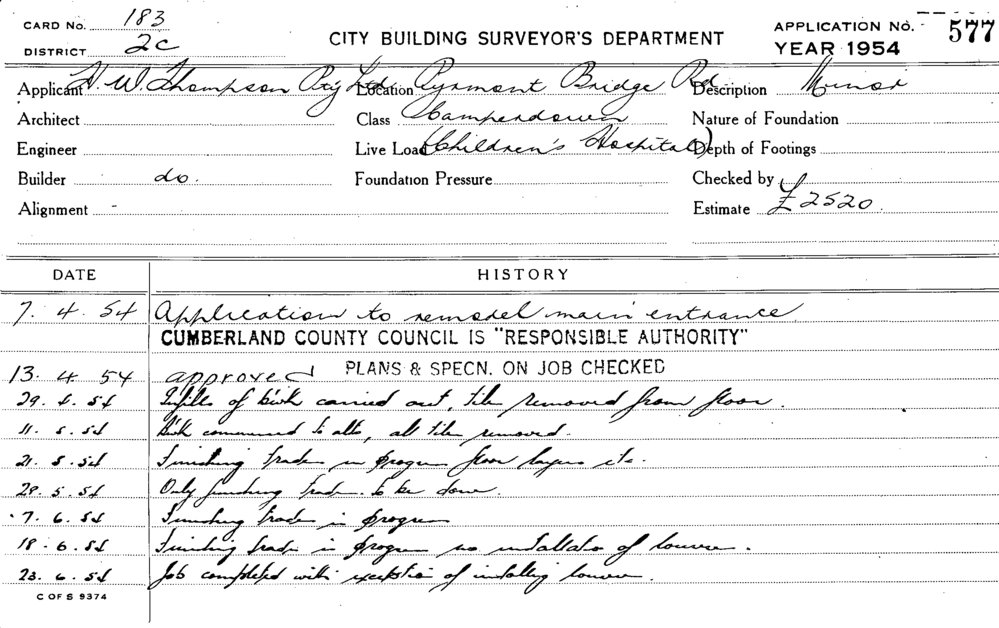 CARD No. 183
DISTRICT 2c
CITY BUILDING SURVEYOR'S DEPARTMENT
APPLICATION No. 577
YEAR 1954
Applicant H. W. Thompson Pty Ltd Location Pyrmont Bridge Rd Description Minor
Architect Class Camperdown Nature of Foundation
Engineer Live Load (Children's Hospital) Depth of Footings
Builder do. Foundation Pressure Checked by
Alignment - Estimate £2520.
DATE HISTORY
7. 4. 54 Application to remodel main entrance
CUMBERLAND COUNTY COUNCIL IS "RESPONSIBLE AUTHORITY"
13. 4. 54 approved PLANS & SPECN. ON JOB CHECKED
29. 4. 54 of brick carried out, tiles removed from floor.
11. 5. 54 commenced to alts, all tiles removed.
21. 5. 54 Finishing trades in progress floor layers etc.
28. 5. 54 Only finishing trades to be done.
7. 6. 54 Finishing trades in progress
18. 6. 54 Finishing trades in progress no installation of louvres.
23. 6. 54 Job completed with exception of installing louvres.
C OF S 9374